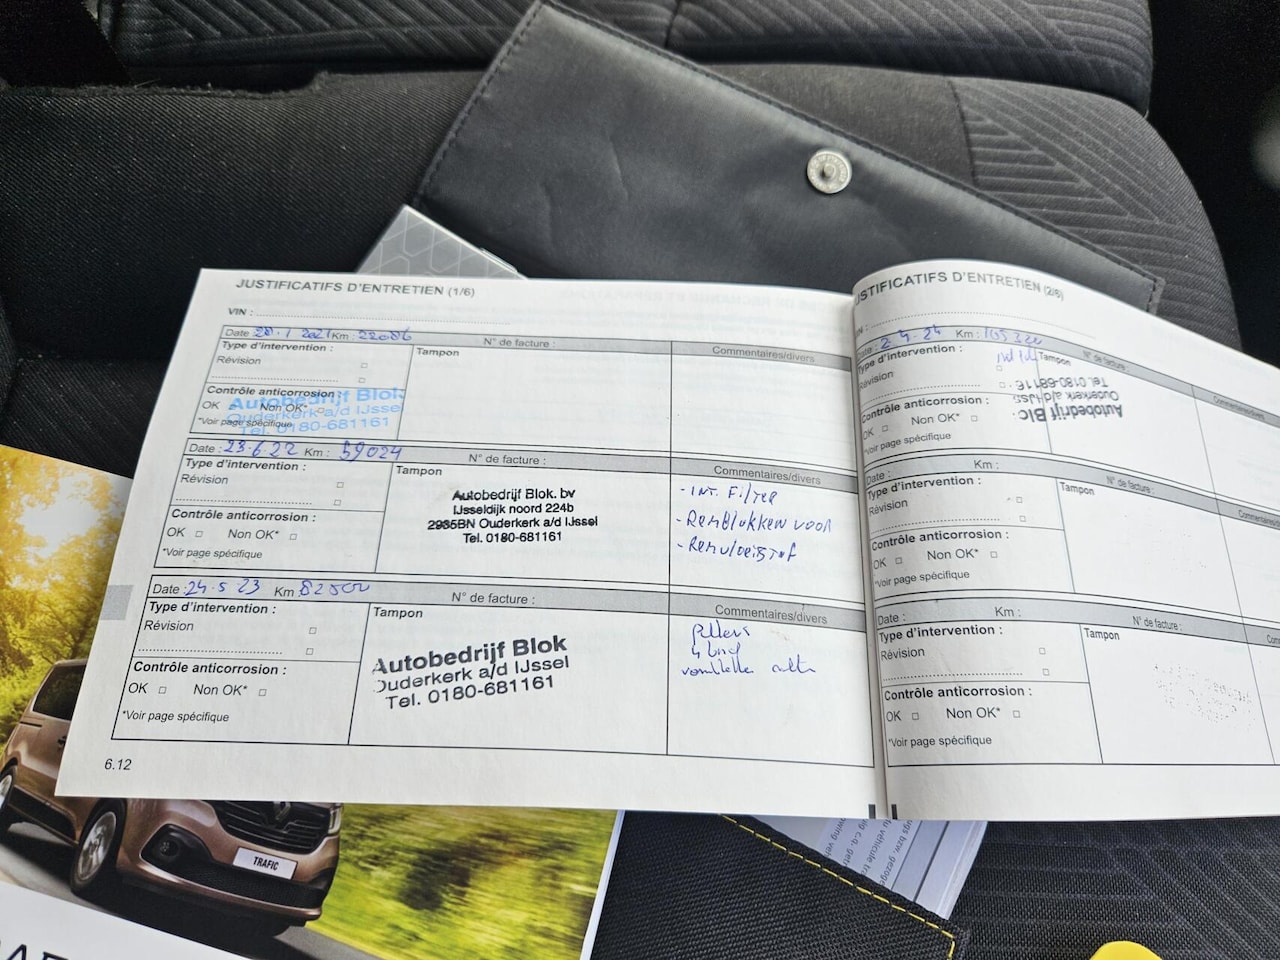 JUSTIFICATIFS D'ENTRETIEN (1/6)
VIN :
Date : 28.1 2021 Km : 22086
N° de facture :
Type d'intervention :
Révision
Tampon
Commentaires/divers
Contrôle anticorrosion :
OK Non OK*
*Voir page spécifique
Autobedrijf Blok
Ouderkerk a/d IJssel
Tel. 0180-681161
Date : 23.6.22 Km : 59024
N° de facture :
Type d'intervention :
Révision
Tampon
Commentaires/divers
Contrôle anticorrosion :
OK Non OK*
*Voir page spécifique
Autobedrijf Blok. bv
IJsseldijk noord 224b
2935BN Ouderkerk a/d IJssel
Tel. 0180-681161
- INT. FILTER
- REMBLOKKEN VOOR
- REMVLOEISTOF
Date : 24.5 23 Km : 82500
N° de facture :
Type d'intervention :
Révision
Tampon
Commentaires/divers
Contrôle anticorrosion :
OK Non OK*
*Voir page spécifique
Autobedrijf Blok
Ouderkerk a/d IJssel
Tel. 0180-681161
6.12
JUSTIFICATIFS D'ENTRETIEN (2/6)
VIN :
Date : 2.4.24 Km : 105320
N° de facture :
Type d'intervention :
Révision
Tampon
Commentaires
Contrôle anticorrosion :
OK Non OK*
*Voir page spécifique
Autobedrijf Blo
Ouderkerk a/d IJss
Tel. 0180-6811
Date : Km :
N° de facture :
Type d'intervention :
Révision
Tampon
Commentaires
Contrôle anticorrosion :
OK Non OK*
*Voir page spécifique
Date : Km :
N° de facture :
Type d'intervention :
Révision
Tampon
Contrôle anticorrosion :
OK Non OK*
*Voir page spécifique
TRAFIC